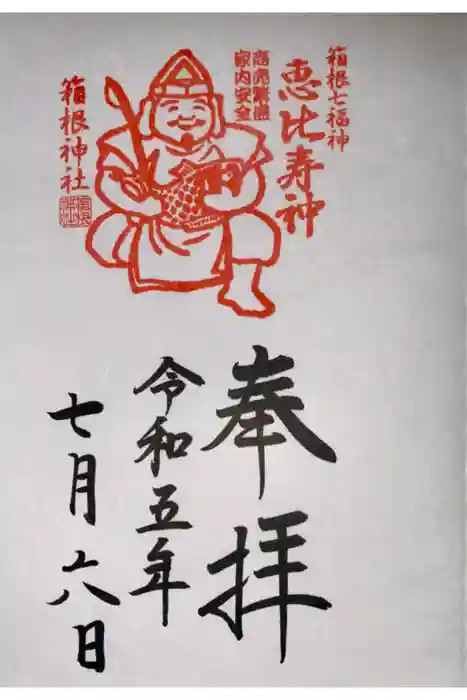 箱根七福神
恵比寿神
商売繁盛
家内安全
箱根神社
奉拝
令和五年
七月六日